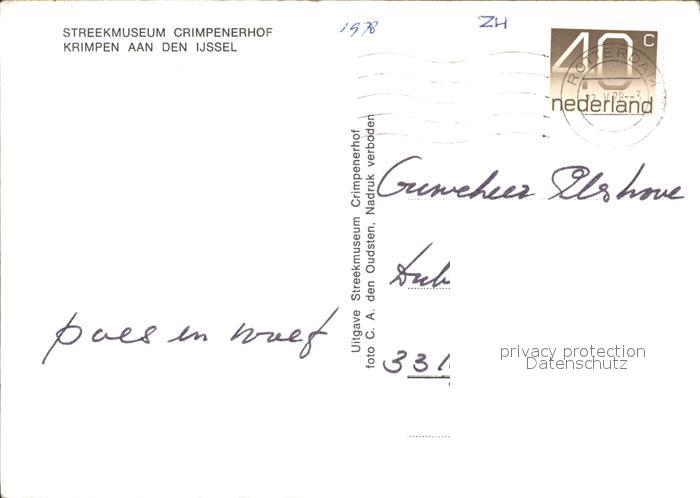 STREEKMUSEUM CRIMPENERHOF
KRIMPEN AAN DEN IJSSEL
1978
ZH
40 C
nederland
ROTTERDAM
Uitgave Streekmuseum Crimpenerhof
foto C. A. den Oudsten, Nadruk verboden
poes en woef
331
privacy protection
Datenschutz